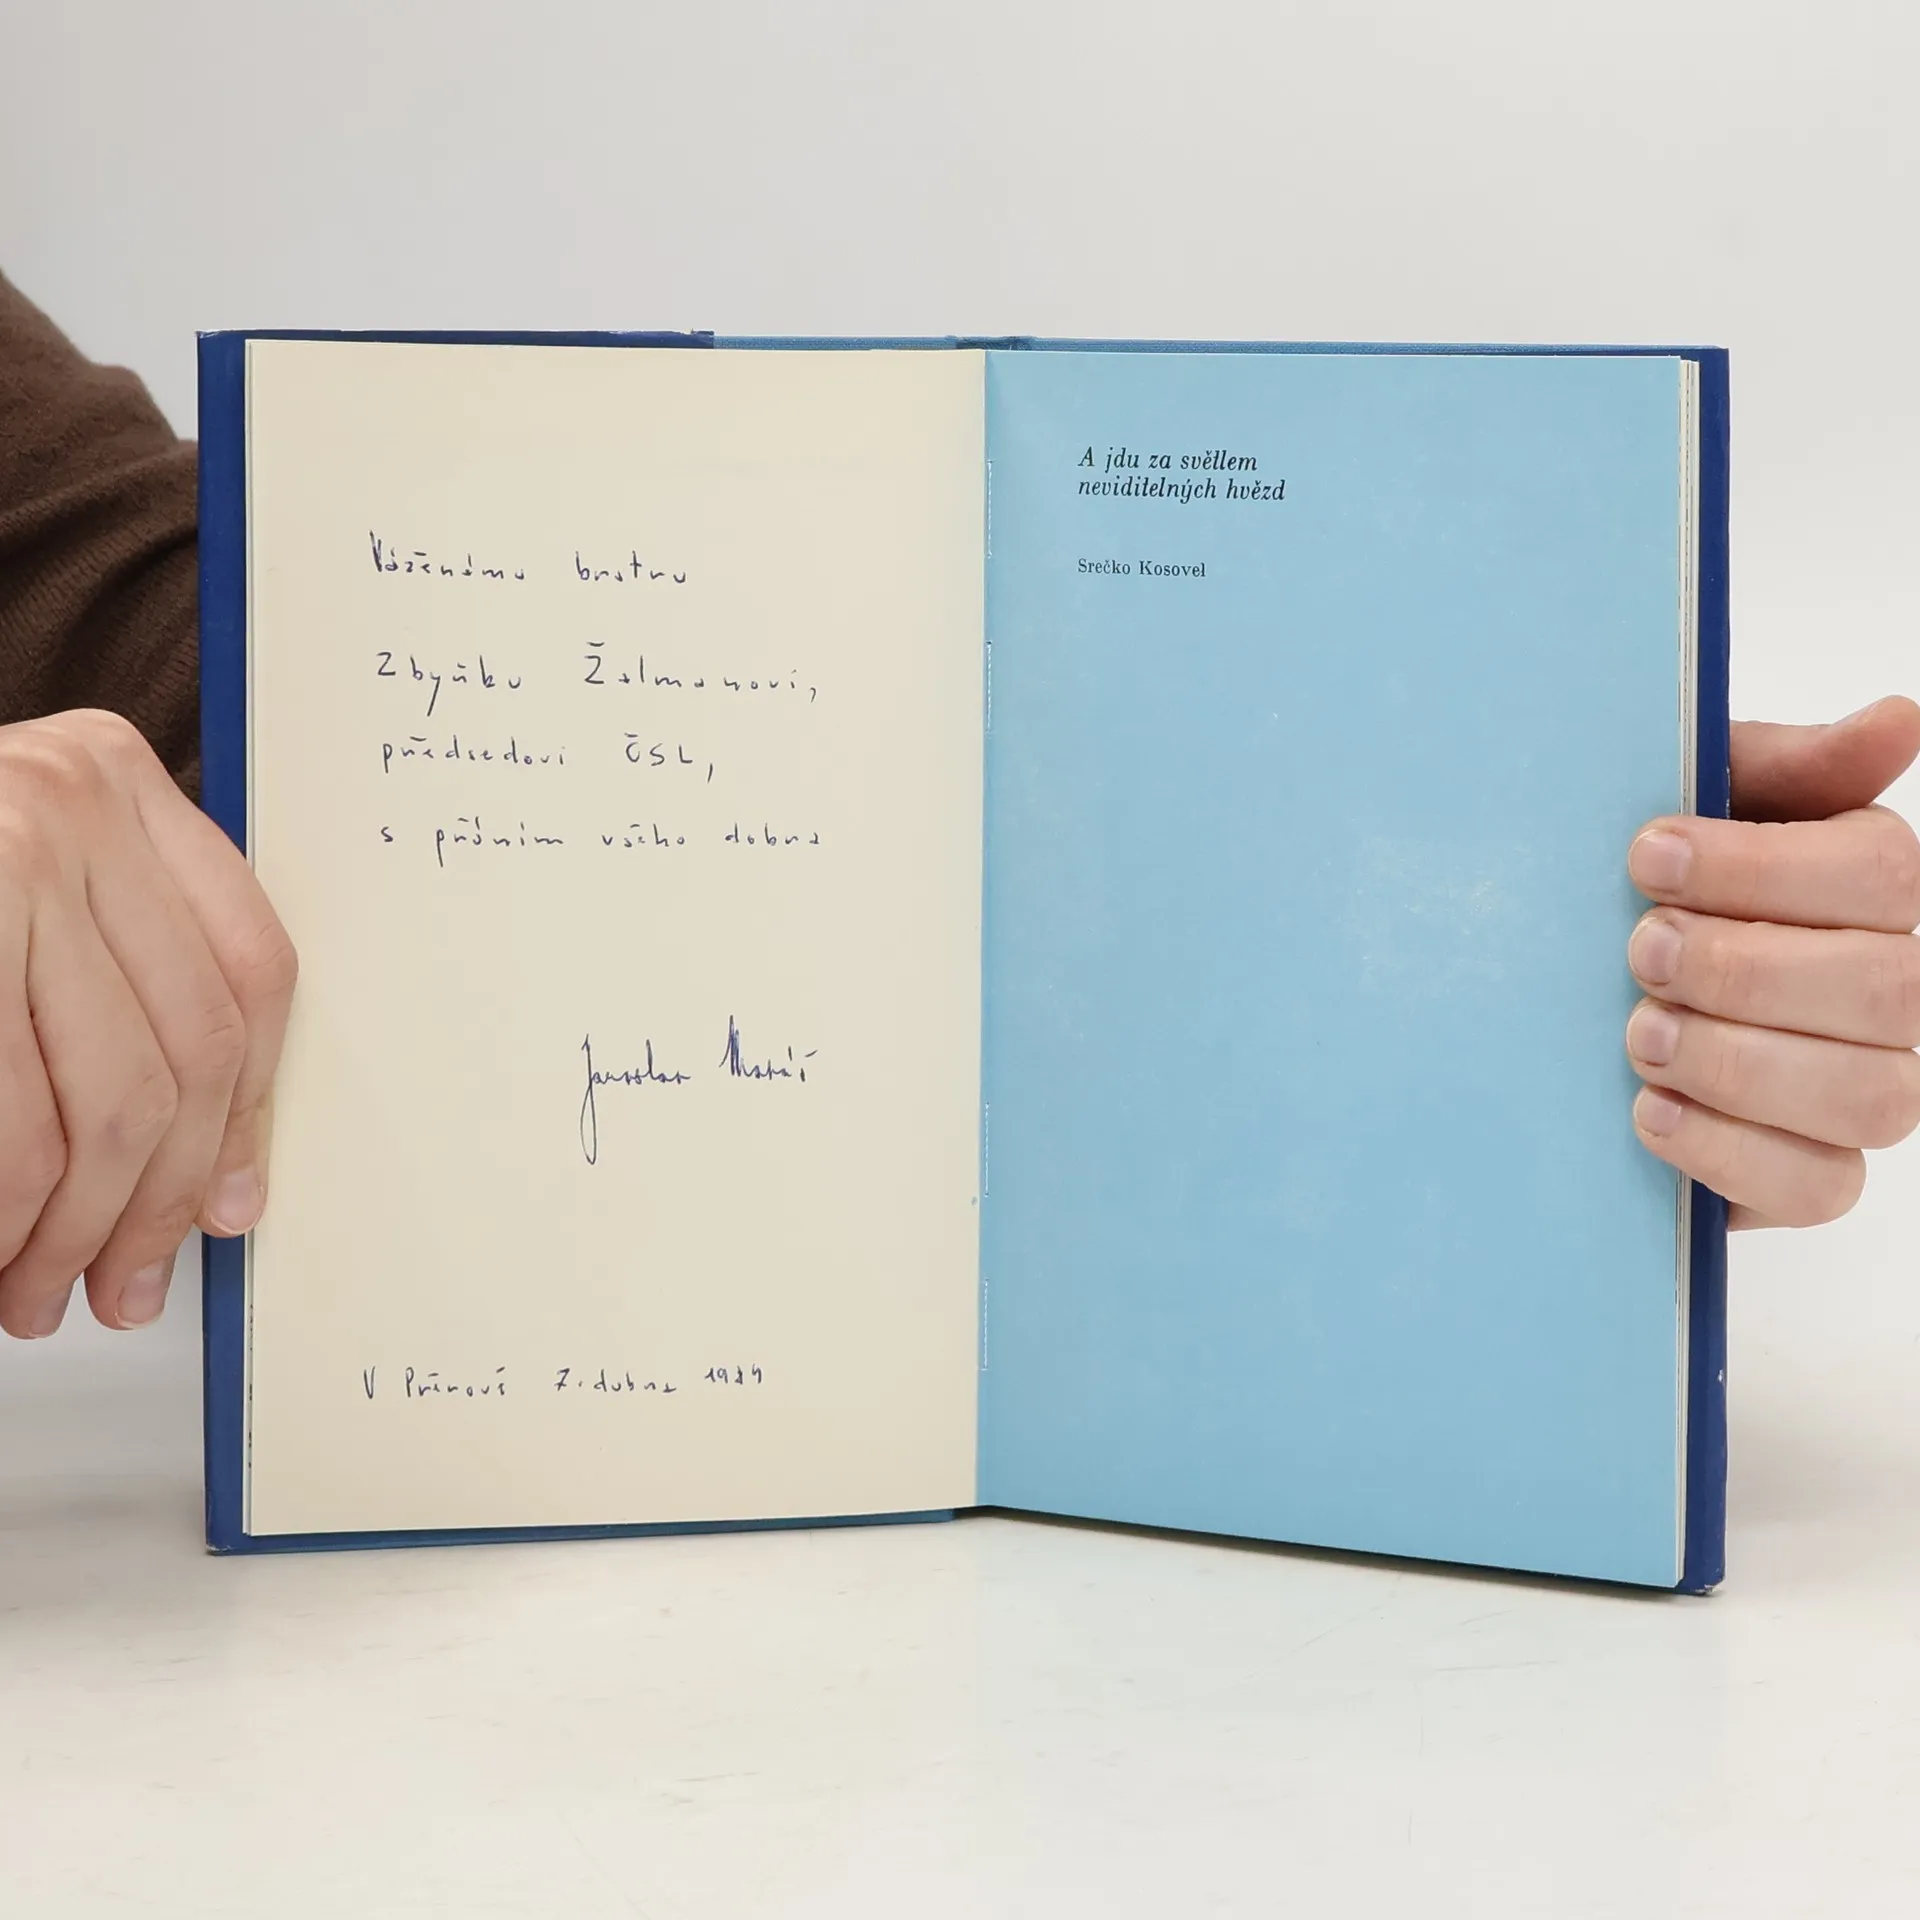 Váženému bratru
Zbyňku Žalmanovi,
předsedovi ČSL,
s přáním všeho dobra
Jaroslav
V Přerově 7. dubna 1984
A jdu za světlem
neviditelných hvězd
Srečko Kosovel